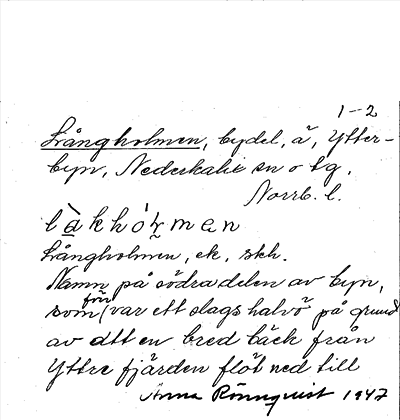 1-2
Långholmen, bydel, å, Ytter-
byn, Nederkalix sn o tg.
Norrb. l.
Långholmen, ek, skh.
Namn på södra delen av byn,
som förr var ett slags halvö på grund
av att en bred bäck från
Yttre fjärden flöt ned till
Anna Rönnquist 1947